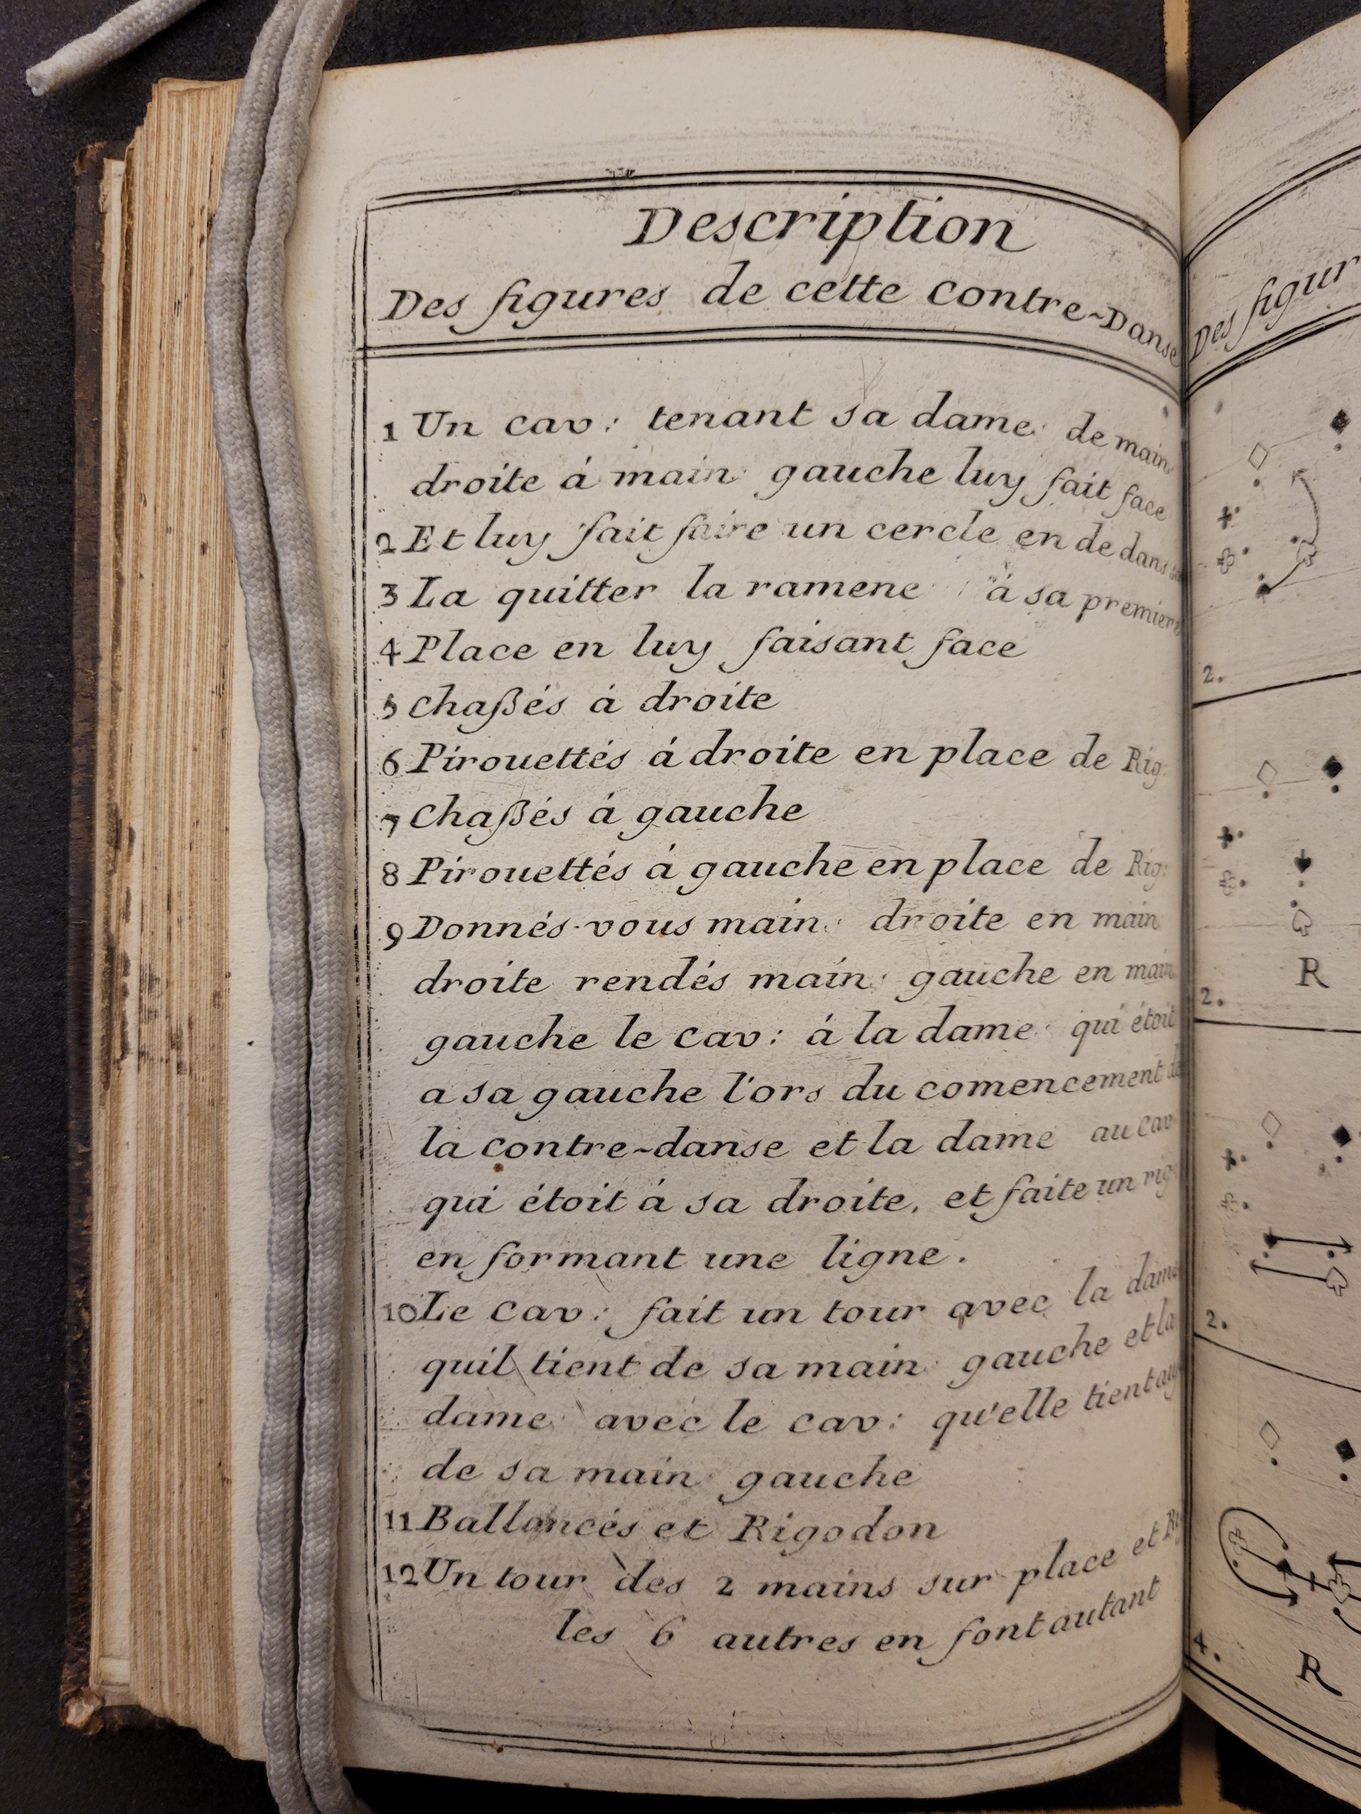 Description
Des figures de cette contre-Danse
1 Un cav: tenant sa dame de main
droite á main gauche luy fait face
2 Et luy fait faire un cercle en dedans
3 La quitter la ramene á sa premiere
4 Place en luy faisant face
5 chaßés á droite
6 Pirouettés á droite en place de Rig:
7 chaßés á gauche
8 Pirouettés á gauche en place de Rig:
9 Donnés vous main droite en main
droite rendés main gauche en main
gauche le cav: á la dame qui étoit
a sa gauche l'ors du comencement de
la contre-danse et la dame au cav
qui étoit á sa droite, et faite un rig
en formant une ligne.
10 Le cav: fait un tour avec la dame
quil tient de sa main gauche et la
dame avec le cav: qu'elle tient
de sa main gauche
11 Ballancés et Rigodon
12 Un tour des 2 mains sur place et
les 6 autres en font autant
Des figur
2.
R
2.
2.
4.
R